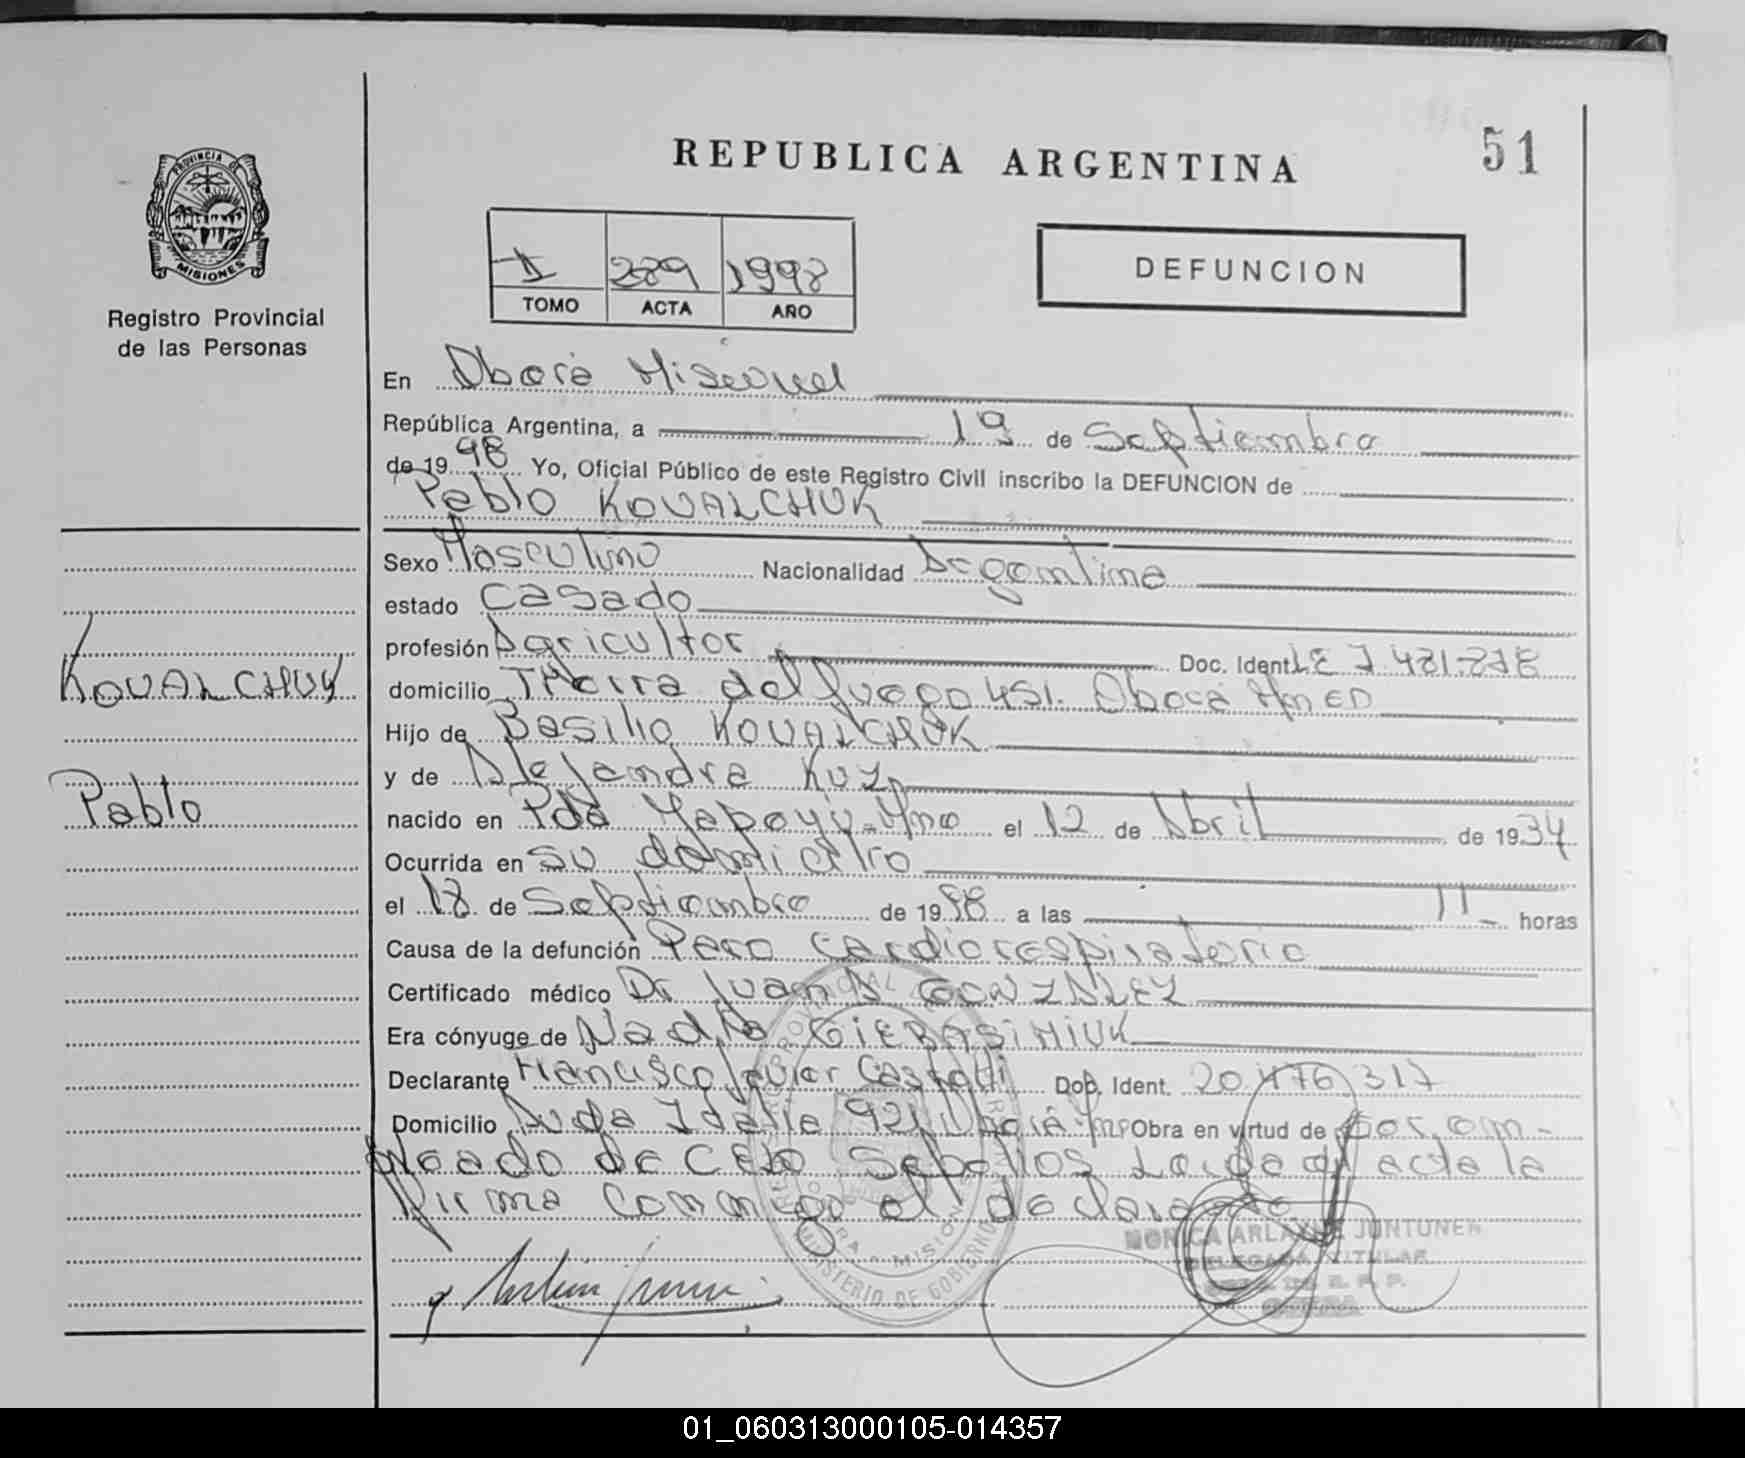 51
REPUBLICA ARGENTINA
PROVINCIA DE
MISIONES
Registro Provincial
de las Personas
I 289 1998
TOMO ACTA AÑO
DEFUNCION
En Oberá Misiones
República Argentina, a 19 de Septiembre
de 1998 Yo, Oficial Público de este Registro Civil inscribo la DEFUNCION de
Pablo KOVALCHUK
Sexo Masculino Nacionalidad Argentina
estado Casado
profesión Agricultor Doc. Ident. LE
domicilio Tierra del fuego 451. Oberá
Hijo de Basilio KOVALCHUK
y de Alejandra
nacido en Pda Yapeyú-Mnes el 12 de Abril de 1934
Ocurrida en su domicilio
el 18 de Septiembre de 1998 a las 11 horas
Causa de la defunción Paro cardiorespiratorio
Certificado médico Dr Juan GONZALEZ
Era cónyuge de Nadia GIERASIMIUK
Declarante Francisco Javier Doc. Ident. 20.476.317
Domicilio 921 Oberá Obra en virtud de ser em-
pleado de Leida el acta la
firma conmigo el declarante
KOVALCHUK
Pablo
MONICA JUNTUNEN
DELEGADA TITULAR
MINISTERIO DE GOBIERNO
01_060313000105-014357